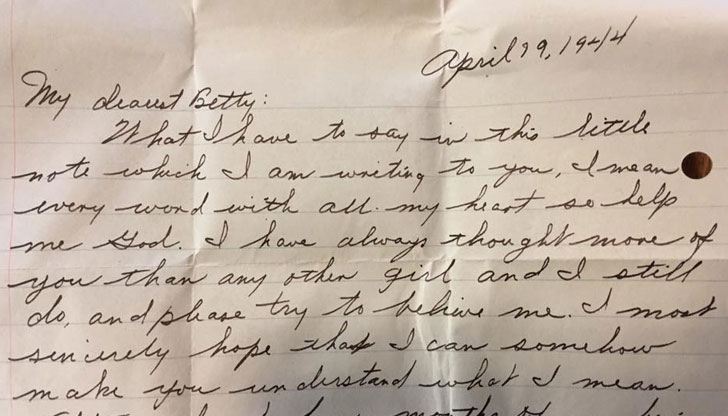 April 29, 1944
My dearest Betty:
What I have to say in this little
note which I am writing to you, I mean
every word with all my heart so help
me God. I have always thought more of
you than any other girl and I still
do, and please try to belive me. I most
sincerely hope that I can somehow
make you understand what I mean.
months of